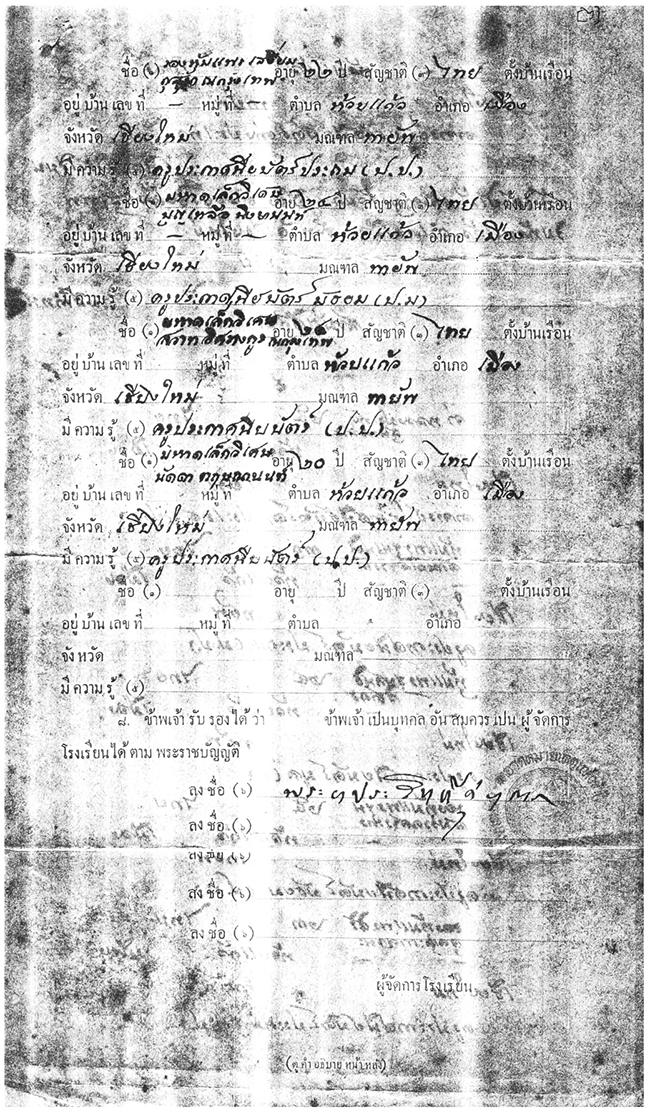 ชื่อ (๑) รองหุ้มแพร เสงี่ยม อายุ ๒๒ ปี สัญชาติ (๓) ไทย ตั้งบ้านเรือน
ณกรุงเทพ
อยู่ บ้าน เลข ที่ — หมู่ ที่ — ตำบล ห้วยแก้ว อำเภอ เมือง
จังหวัด เชียงใหม่ มณฑล พายัพ
มี ความ รู้ (๕) ครูประกาศนียบัตร์ประถม (ป.ป.)
ชื่อ (๑) มหาดเล็กวิเศษ อายุ ๒๔ ปี สัญชาติ (๓) ไทย ตั้งบ้านเรือน
บุญเหลือ
อยู่ บ้าน เลข ที่ — หมู่ ที่ — ตำบล ห้วยแก้ว อำเภอ เมือง
จังหวัด เชียงใหม่ มณฑล พายัพ
มี ความ รู้ (๕) ครูประกาศนียบัตร์ มัธยม (ป.ม)
ชื่อ (๑) มหาดเล็กวิเศษ อายุ ปี สัญชาติ (๓) ไทย ตั้งบ้านเรือน
สวาท ณกรุงเทพ
อยู่ บ้าน เลข ที่ หมู่ ที่ ตำบล ห้วยแก้ว อำเภอ เมือง
จังหวัด เชียงใหม่ มณฑล พายัพ
มี ความ รู้ (๕) ครูประกาศนียบัตร์ (ป.ป.)
ชื่อ (๑) มหาดเล็กวิเศษ อายุ ๒๐ ปี สัญชาติ (๓) ไทย ตั้งบ้านเรือน
อยู่ บ้าน เลข ที่ หมู่ ที่ ตำบล ห้วยแก้ว อำเภอ เมือง
จังหวัด เชียงใหม่ มณฑล พายัพ
มี ความ รู้ (๕) ครูประกาศนียบัตร์ (ป.ป.)
ชื่อ (๑) อายุ ปี สัญชาติ (๓) ตั้งบ้านเรือน
อยู่ บ้าน เลข ที่ หมู่ ที่ ตำบล อำเภอ
จังหวัด มณฑล
มี ความ รู้ (๕)
๘. ข้าพเจ้า รับ รอง ได้ ว่า ข้าพเจ้า เป็นบุคคล อัน สมควร เปน ผู้ จัดการ
โรงเรียน ได้ ตาม พระราชบัญญัติ
ลง ชื่อ (๖) พระ
ลง ชื่อ (๖)
ลง ชื่อ (๖)
ลง ชื่อ (๖)
ลง ชื่อ (๖)
ผู้จัดการโรงเรียน
(ดู คำ อธิบาย หน้า หลัง)